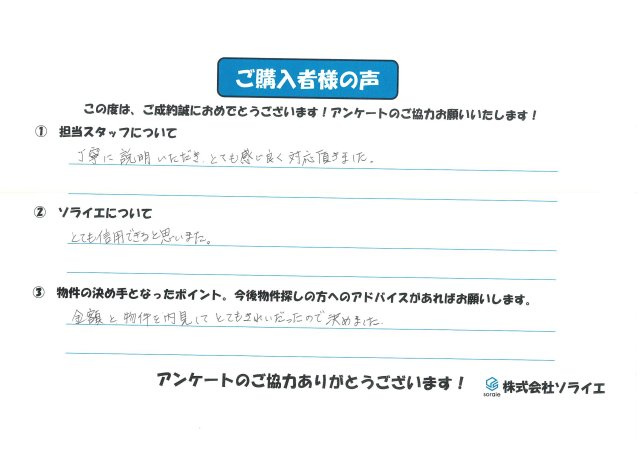 ご購入者様の声
この度は、ご成約誠におめでとうございます！アンケートのご協力お願いいたします！
① 担当スタッフについて
丁寧に説明いただき、とても感じ良く対応頂きました。
② ソライエについて
とても信用できると思いました。
③ 物件の決め手となったポイント。今後物件探しの方へのアドバイスがあればお願いします。
金額と物件を内見してとてもきれいだったので決めました。
アンケートのご協力ありがとうございます！
soraie 株式会社ソライエ